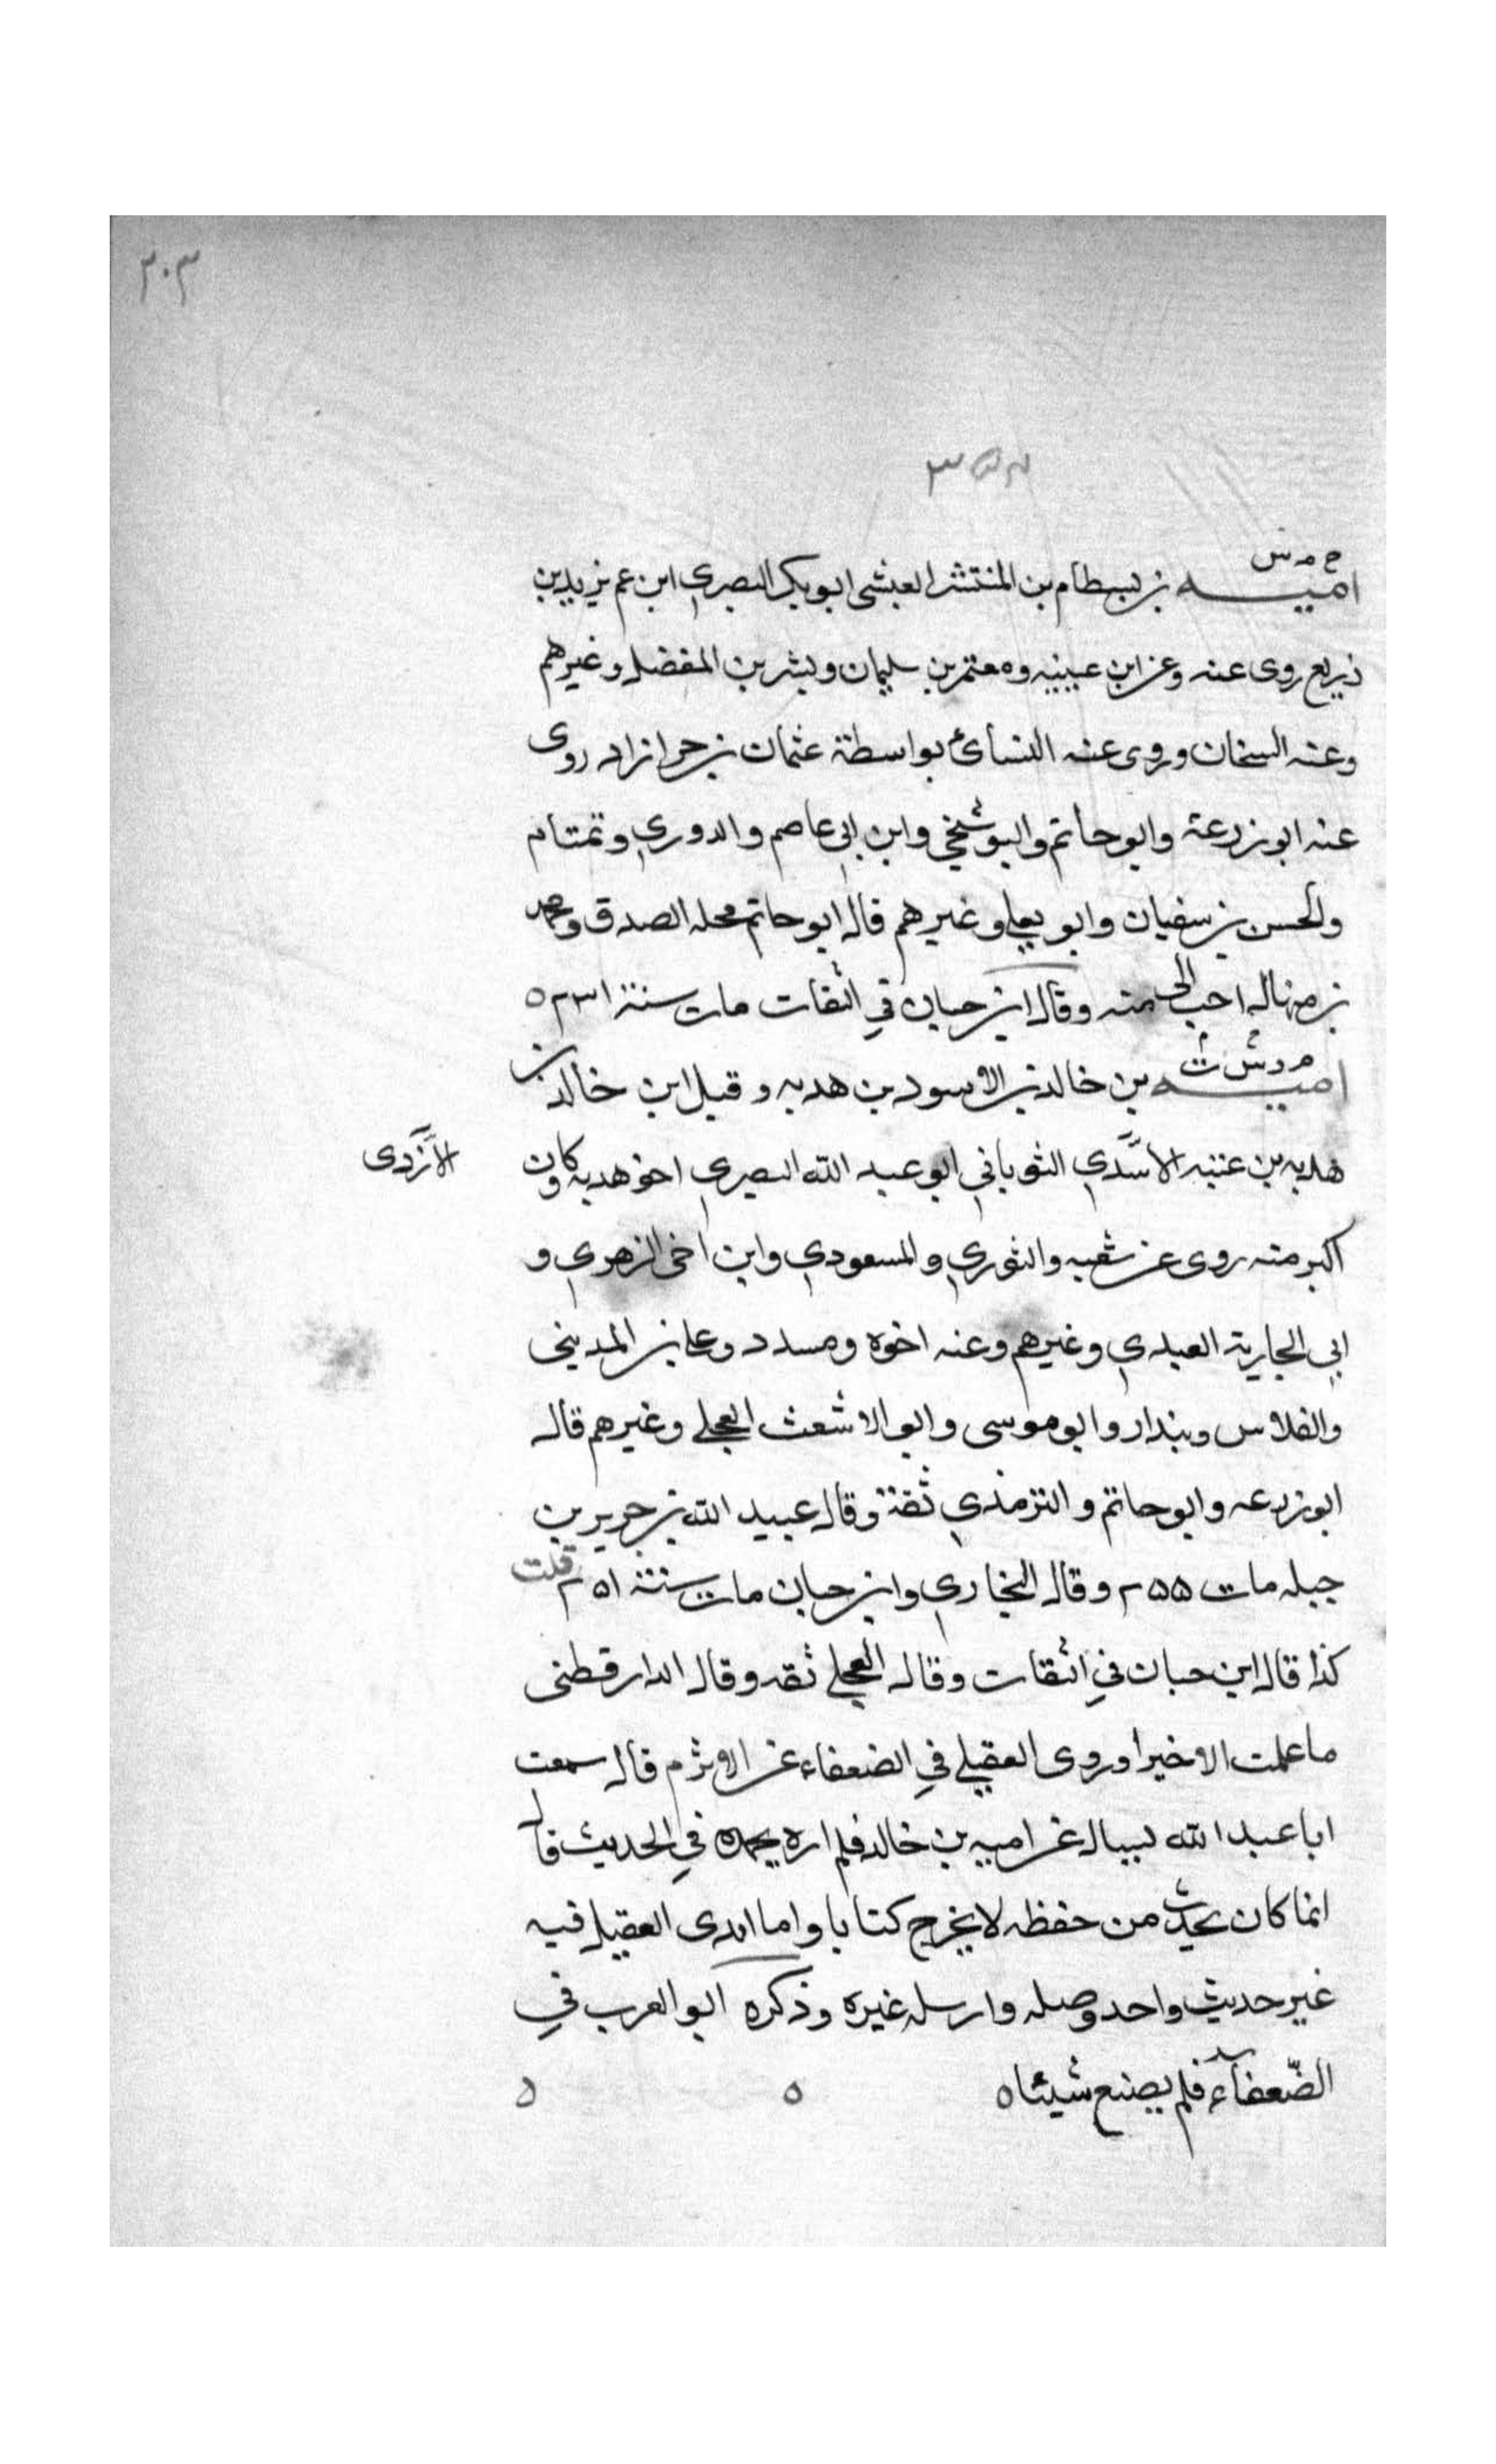 ٣٠٣
خ م س
امية بن بسطام بن المنتشر العيشى ابو بكر البصري ابن عم يزيد بن
زريع روى عنه وعن ابن عيينه ومعتمر بن سليمان وبشر بن المفضل وغيرهم
وعنه الشيخان وروى عنه النسائي بواسطة عثمان بن خرازاد روى
عنه ابو زرعة وابو حاتم والبوشنجي وابن ابي عاصم والدوري وتمتام
والحسن بن سفيان وابو يعلى وغيرهم قال ابو حاتم محله الصدق ومحمد
بن منهال احب الى منه وقال ابن حبان في الثقات مات سنة ٢٣١ ه
م د ت س
امية بن خالد بن الاسود بن هدبه وقيل ابن خالد بن
هدبه بن عتبه الاسَّدي الثوباني ابو عبد الله البصري اخو هدبة وكان
الأَزدى
اكبر منه روى عن شعبه والثوري والمسعودي وابن اخى الزهري و
ابي الجارية العبدي وغيرهم وعنه اخوه ومسدد وعلى بن المدينى
والفلاس وبندار وابو موسى وابو الاشعث العجلي وغيرهم قال
ابو زرعه وابو حاتم والترمذي ثقة وقال عبيد الله بن جرير بن
جبله مات ٢٥٥ وقال البخاري وابن حبان مات سنة ٢٥١ قلت
كذا قال ابن حبان في الثقات وقال العجلي ثقه وقال الدارقطنى
ما علمت الا خيرا وروى العقيلي في الضعفاء عن الاثرم قال سمعت
ابا عبد الله يسال عن اميه بن خالد فلم اره يحمده في الحديث قال
انما كان يحدث من حفظه لا يخرج كتابا واما ابدى العقيلي فيه
غير حديث واحد وصله وارسله غيره وذكره ابو العرب في
الضّعفاء فلم يصنع شيئا ه